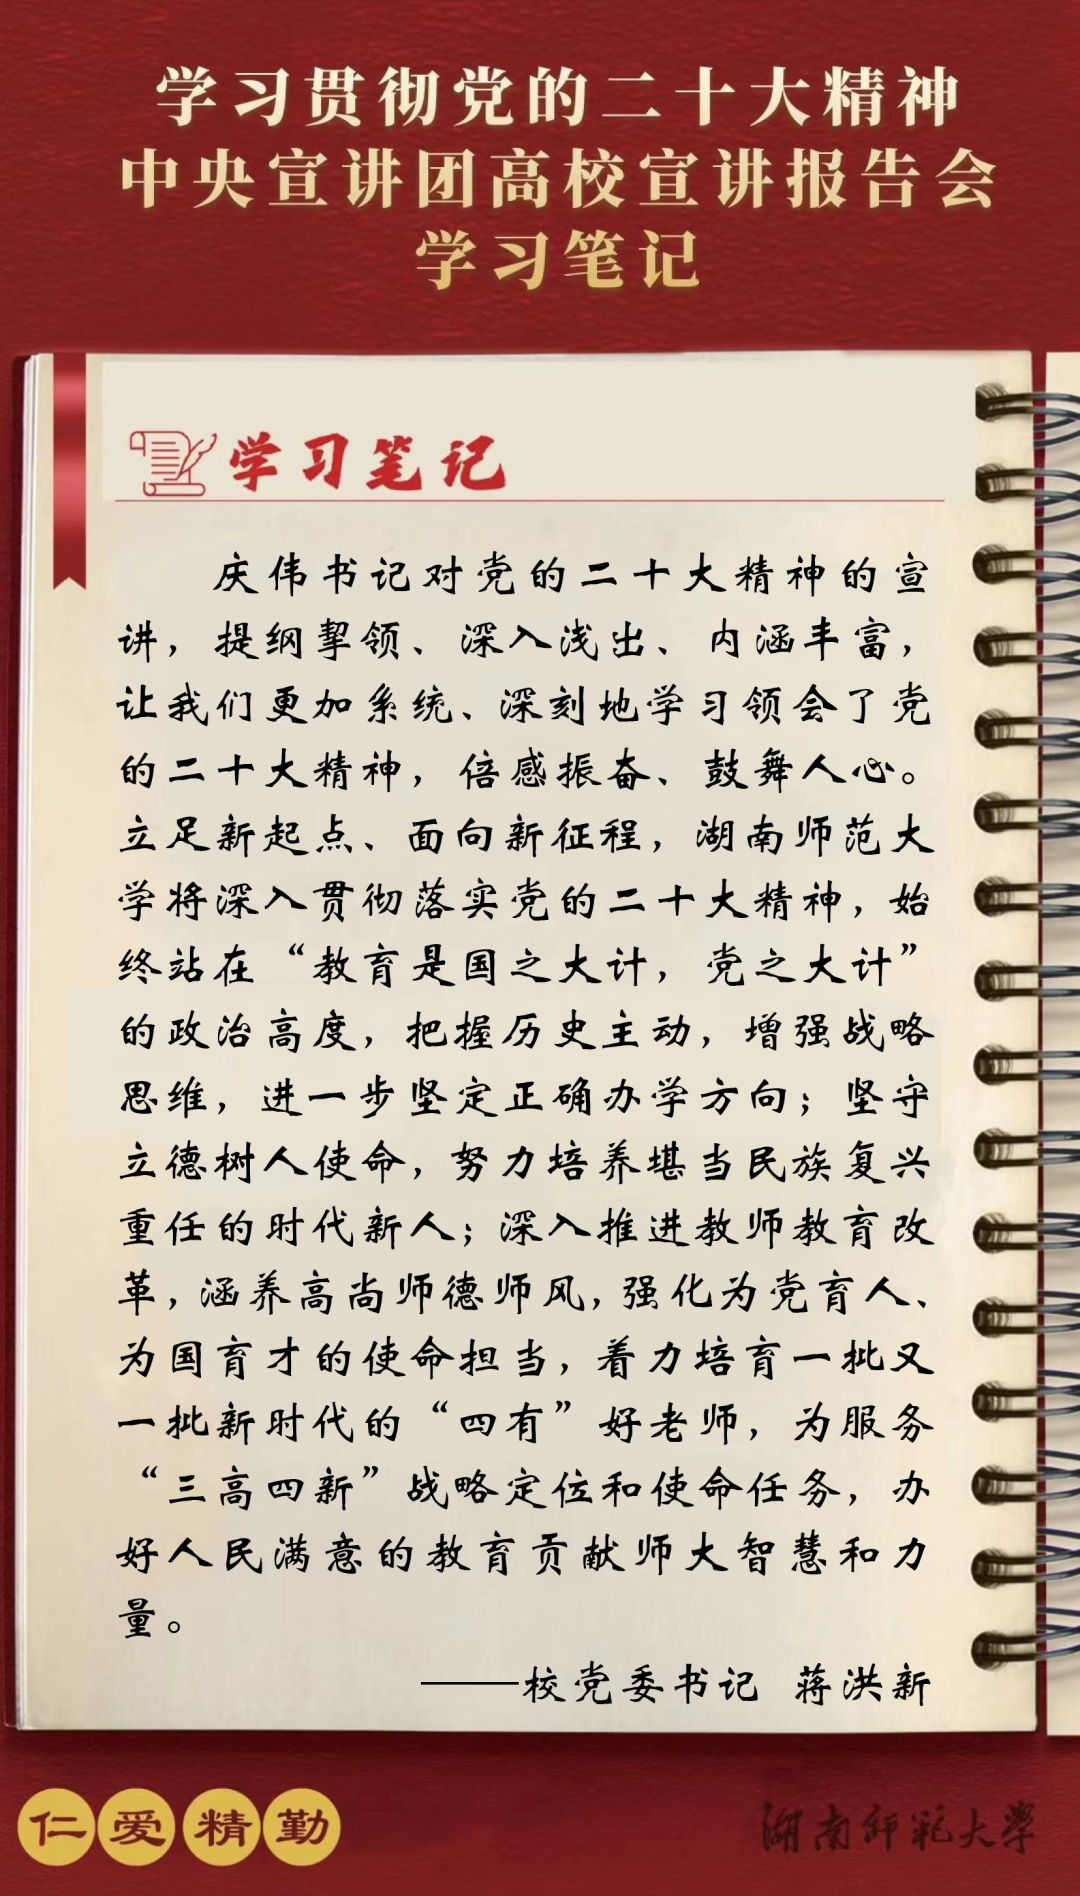 学习贯彻党的二十大精神
中央宣讲团高校宣讲报告会
学习笔记
学习笔记
庆伟书记对党的二十大精神的宣
讲，提纲挈领、深入浅出、内涵丰富，
让我们更加系统、深刻地学习领会了党
的二十大精神，倍感振奋、鼓舞人心。
立足新起点、面向新征程，湖南师范大
学将深入贯彻落实党的二十大精神，始
终站在“教育是国之大计，党之大计”
的政治高度，把握历史主动，增强战略
思维，进一步坚定正确办学方向；坚守
立德树人使命，努力培养堪当民族复兴
重任的时代新人；深入推进教师教育改
革，涵养高尚师德师风，强化为党育人、
为国育才的使命担当，着力培育一批又
一批新时代的“四有”好老师，为服务
“三高四新”战略定位和使命任务，办
好人民满意的教育贡献师大智慧和力
量。
——校党委书记 蒋洪新
仁爱精勤
湖南师范大学